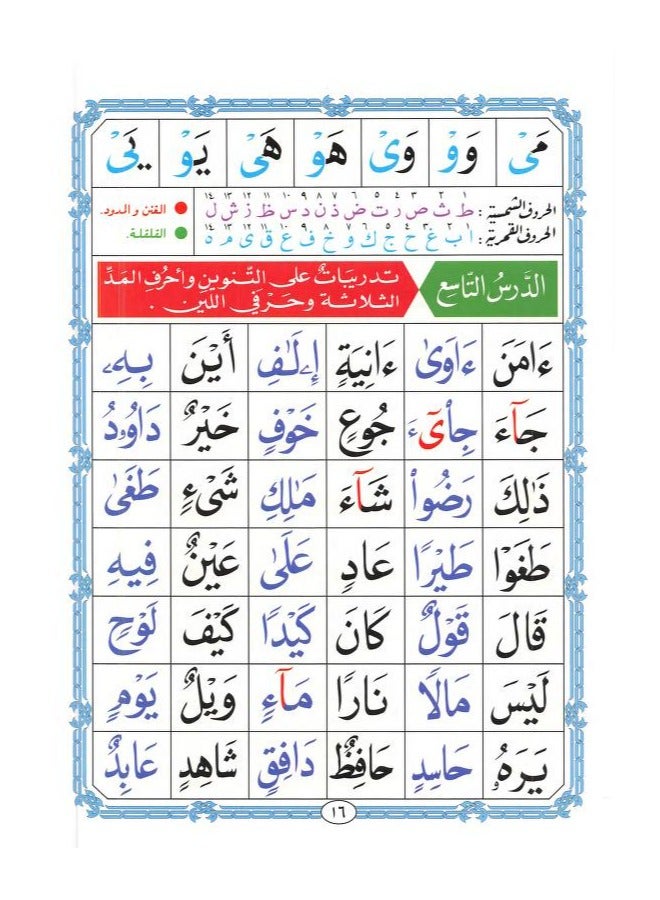 مَىْ وَوْ وَىْ هَوْ هَىْ يَوْ يَىْ
١ ٢ ٣ ٤ ٥ ٦ ٧ ٨ ٩ ١٠ ١١ ١٢ ١٣ ١٤
الحروف الشمسية : ط ث ص ر ت ض ذ ن د س ظ ز ش ل ● الغنن والمدود.
١ ٢ ٣ ٤ ٥ ٦ ٧ ٨ ٩ ١٠ ١١ ١٢ ١٣ ١٤
الحروف القمرية : ا ب غ ح ج ك و خ ف ع ق ى م ه ● القلقلة.
الدَّرسُ التَّاسِع
تدريبَاتٌ على التَّنوينِ وأحرُفِ المَدِّ
الثلاثة وحَرْفَي اللين .
ءَامَنَ ءَاوَىٰ ءَانِيَةٍ إِۦلَٰفِ أَيْنَ بِهِۦ
جَآءَ جِاْىٓءَ جُوعٍ خَوْفٍ خَيْرٌ دَاوُۥدُ
ذَٰلِكَ رَضُواْ شَآءَ مَٰلِكِ شَىْءٍ طَغَىٰ
طَغَوْا طَيْرًا عَادٍ عَلَىٰ عَيْنٌ فِيهِ
قَالَ قَوْلٌ كَانَ كَيْدًا كَيْفَ لَوْحٍ
لَيْسَ مَالًا نَارًا مَآءٍ وَيْلٌ يَوْمٍ
يَرَهُۥ حَاسِدٍ حَافِظٌ دَافِقٍ شَاهِدٍ عَابِدٌ
١٦